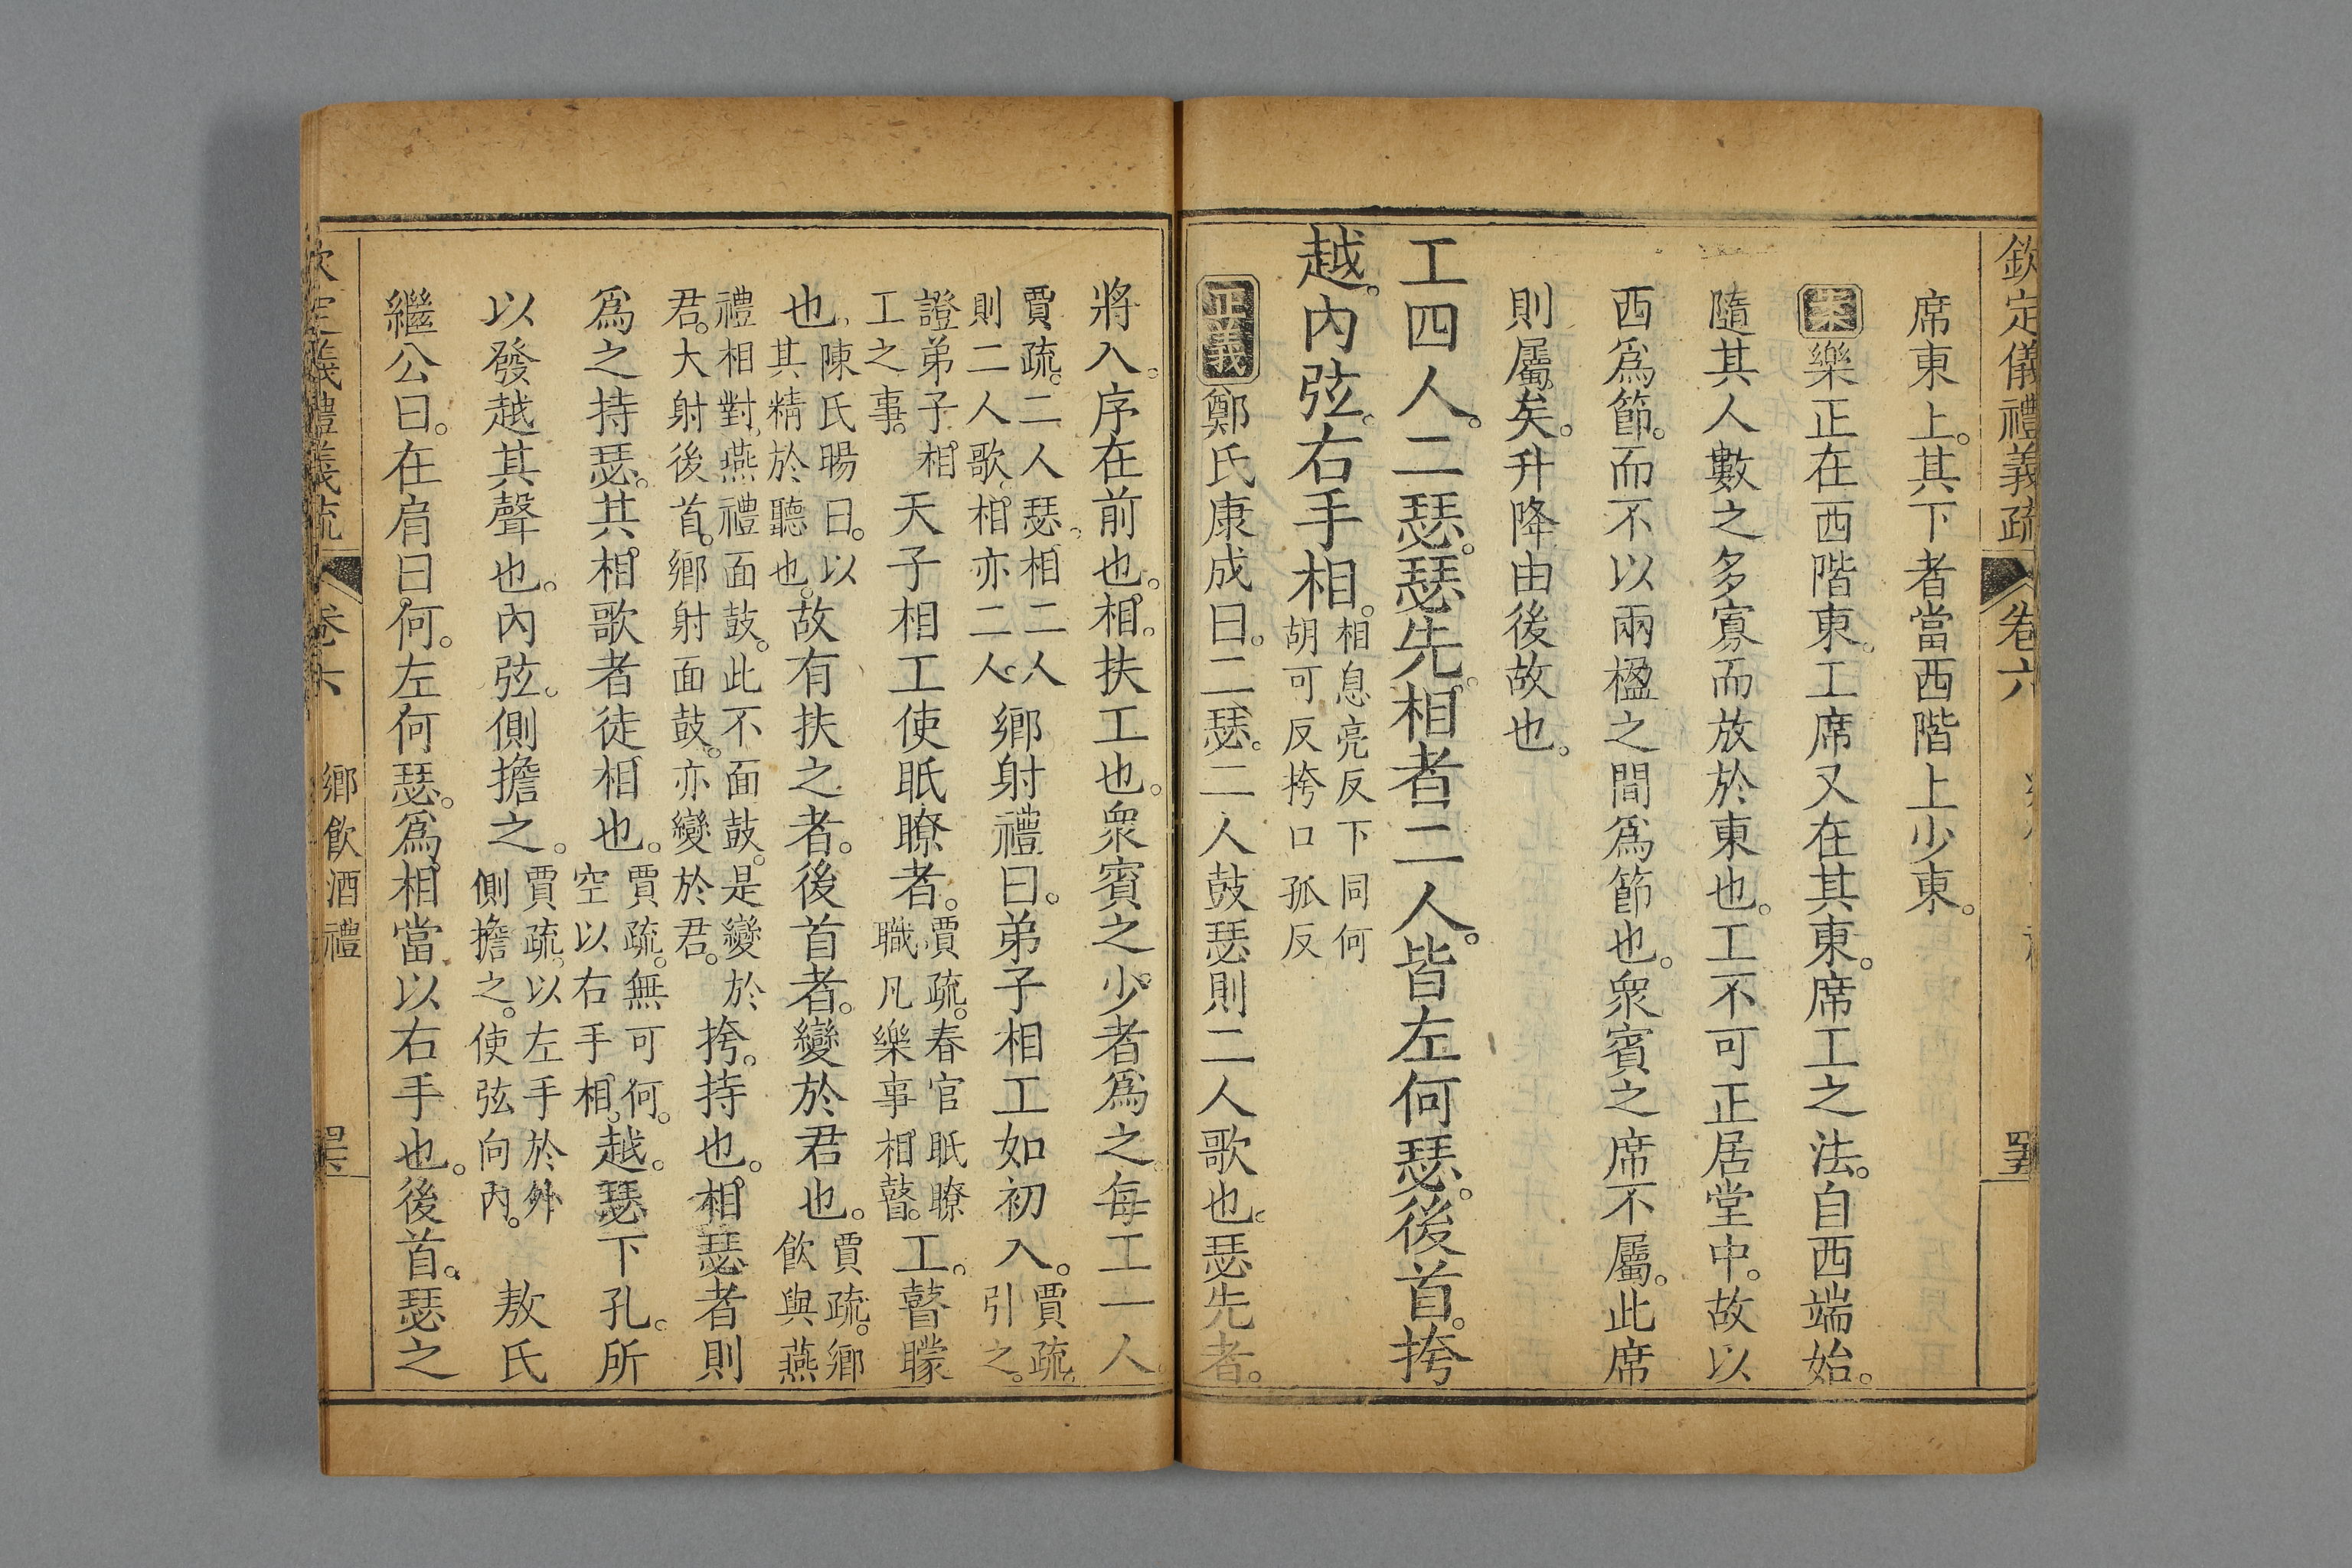 欽定儀禮義疏 卷六
席東上。其下者當西階上少東。
案樂正在西階東。工席又在其東。席工之法。自西端始。
隨其人數之多寡而放於東也。工不可正居堂中。故以
西爲節。而不以兩楹之間爲節也。衆賓之席不屬。此席
則屬矣。升降由後故也。
工四人。二瑟。瑟先。相者二人。皆左何瑟。後首。挎
越。內弦。右手相。相息亮反下同何
胡可反挎口孤反
正義鄭氏康成曰。二瑟。二人鼓瑟則二人歌也。瑟先者。
將入。序在前也。相。扶工也。衆賓之少者爲之。每工一人。
賈疏。二人瑟。相二人
則二人歌。相亦二人。
鄉射禮曰。弟子相工如初入。賈疏。
引之。
證弟子相
工之事。
天子相工使眡瞭者。賈疏。春官眡瞭
職凡樂事相瞽。
工。瞽矇
也。陳氏暘曰。以
其精於聽也。
故有扶之者。後首者。變於君也。賈疏。鄉
飲與燕
禮相對。燕禮面鼓。此不面鼓。是變於
君。大射後首。鄉射面鼓。亦變於君。
挎。持也。相瑟者則
爲之持瑟。其相歌者徒相也。賈疏。無可何。
空以右手相。
越。瑟下孔。所
以發越其聲也。內弦。側擔之。賈疏。以左手於外
側擔之。使弦向內。
敖氏
繼公曰。在肩曰何。左何瑟。爲相當以右手也。後首。瑟之
欽定儀禮義疏 卷六 鄉飲酒禮